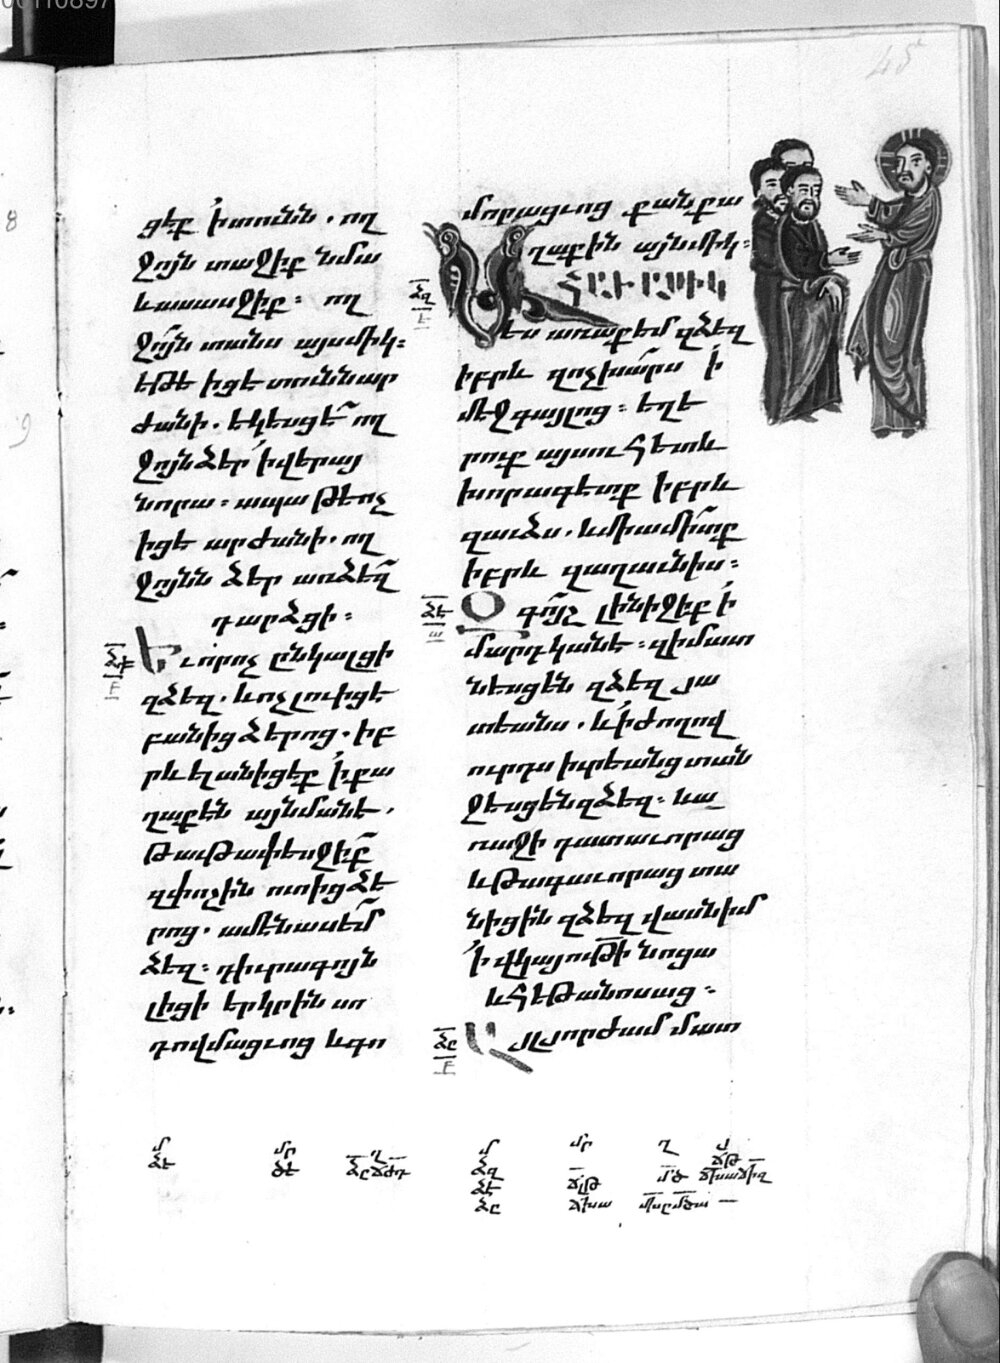 ցէք ՛ի տունն . ող
ջոյն տաջիք նմա
և ասասջիք : ող
ջո՜յն տանս այսմիկ :
եթէ իցէ տունն ար
ժանի . եկեսցէ՜ ող
ջոյն ձեր ՛ի վերայ
նորա : ապա թէ ոչ
իցէ արժանի . ող
ջոյնն ձեր առ ձե՜զ
դարձցի :
Եւ որ ոչ ընկալցի
զձեզ . և ոչ լուիցէ
բանից ձերոց . իբ
րև ելանիցէք ՛ի քա
ղաքէն յայնմանէ .
թաւթափեսջի՜ք
զփոշին ոտից ձե
րոց . ամէն ասե՜մ
ձեզ : դիւրագոյն
լիցի երկրին սո
դովմացւոց և գո
մորացւոց քան քա
ղաքին այնմիկ :
ՀԱՒԱՍԻԿ
ես առաքեմ զձեզ
իբրև զոչխա՜րս ՛ի
մէջ գայլոց : եղե
րուք այսուհետև
խորագէտք իբրև
զաւձս . և միամի՜տք
իբրև զաղաւնիս :
Զգո՜յշ լինիջիք ՛ի
մարդկանէ : զի մատ
նեսցեն զձեզ յա
տեանս . և ՛ի ժողով
ուրդս իւրեանց տան
ջեսցեն զձեզ : և ա
ռաջի դատաւորաց
և թագաւորաց տա
նիցին զձեզ վասն իմ
՛ի վկայութի նոցա
և հեթանոսաց :
Այլ յորժամ մատ
45